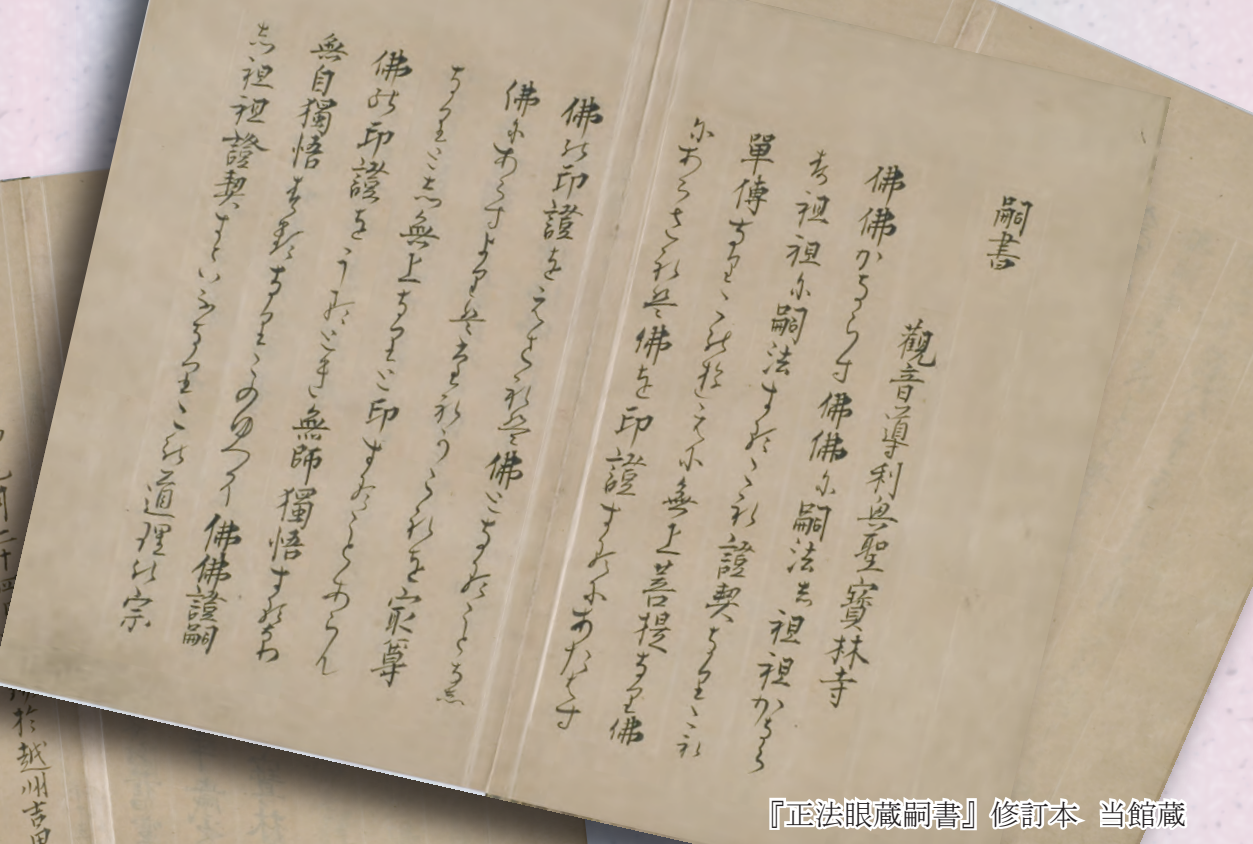 嗣書
觀音導利興聖寶林寺
佛佛かならす佛佛に嗣法し祖祖かなら
す祖祖に嗣法するこれ證契なりこれ
單傳なりこのゆゑに無上菩提なり佛
にあらされは佛を印證するにあたはす
佛の印證をえされは佛となることなし
佛にあらすよりはたれかこれを最尊
なりとし無上なりと印することあらん
佛の印證をうるとき無師獨悟するなり
無自獨悟するなりこのゆへに佛佛證嗣
し祖祖證契すといふなりこの道理の宗
月二十四
於越州吉田
『正法眼蔵嗣書』修訂本 当館蔵